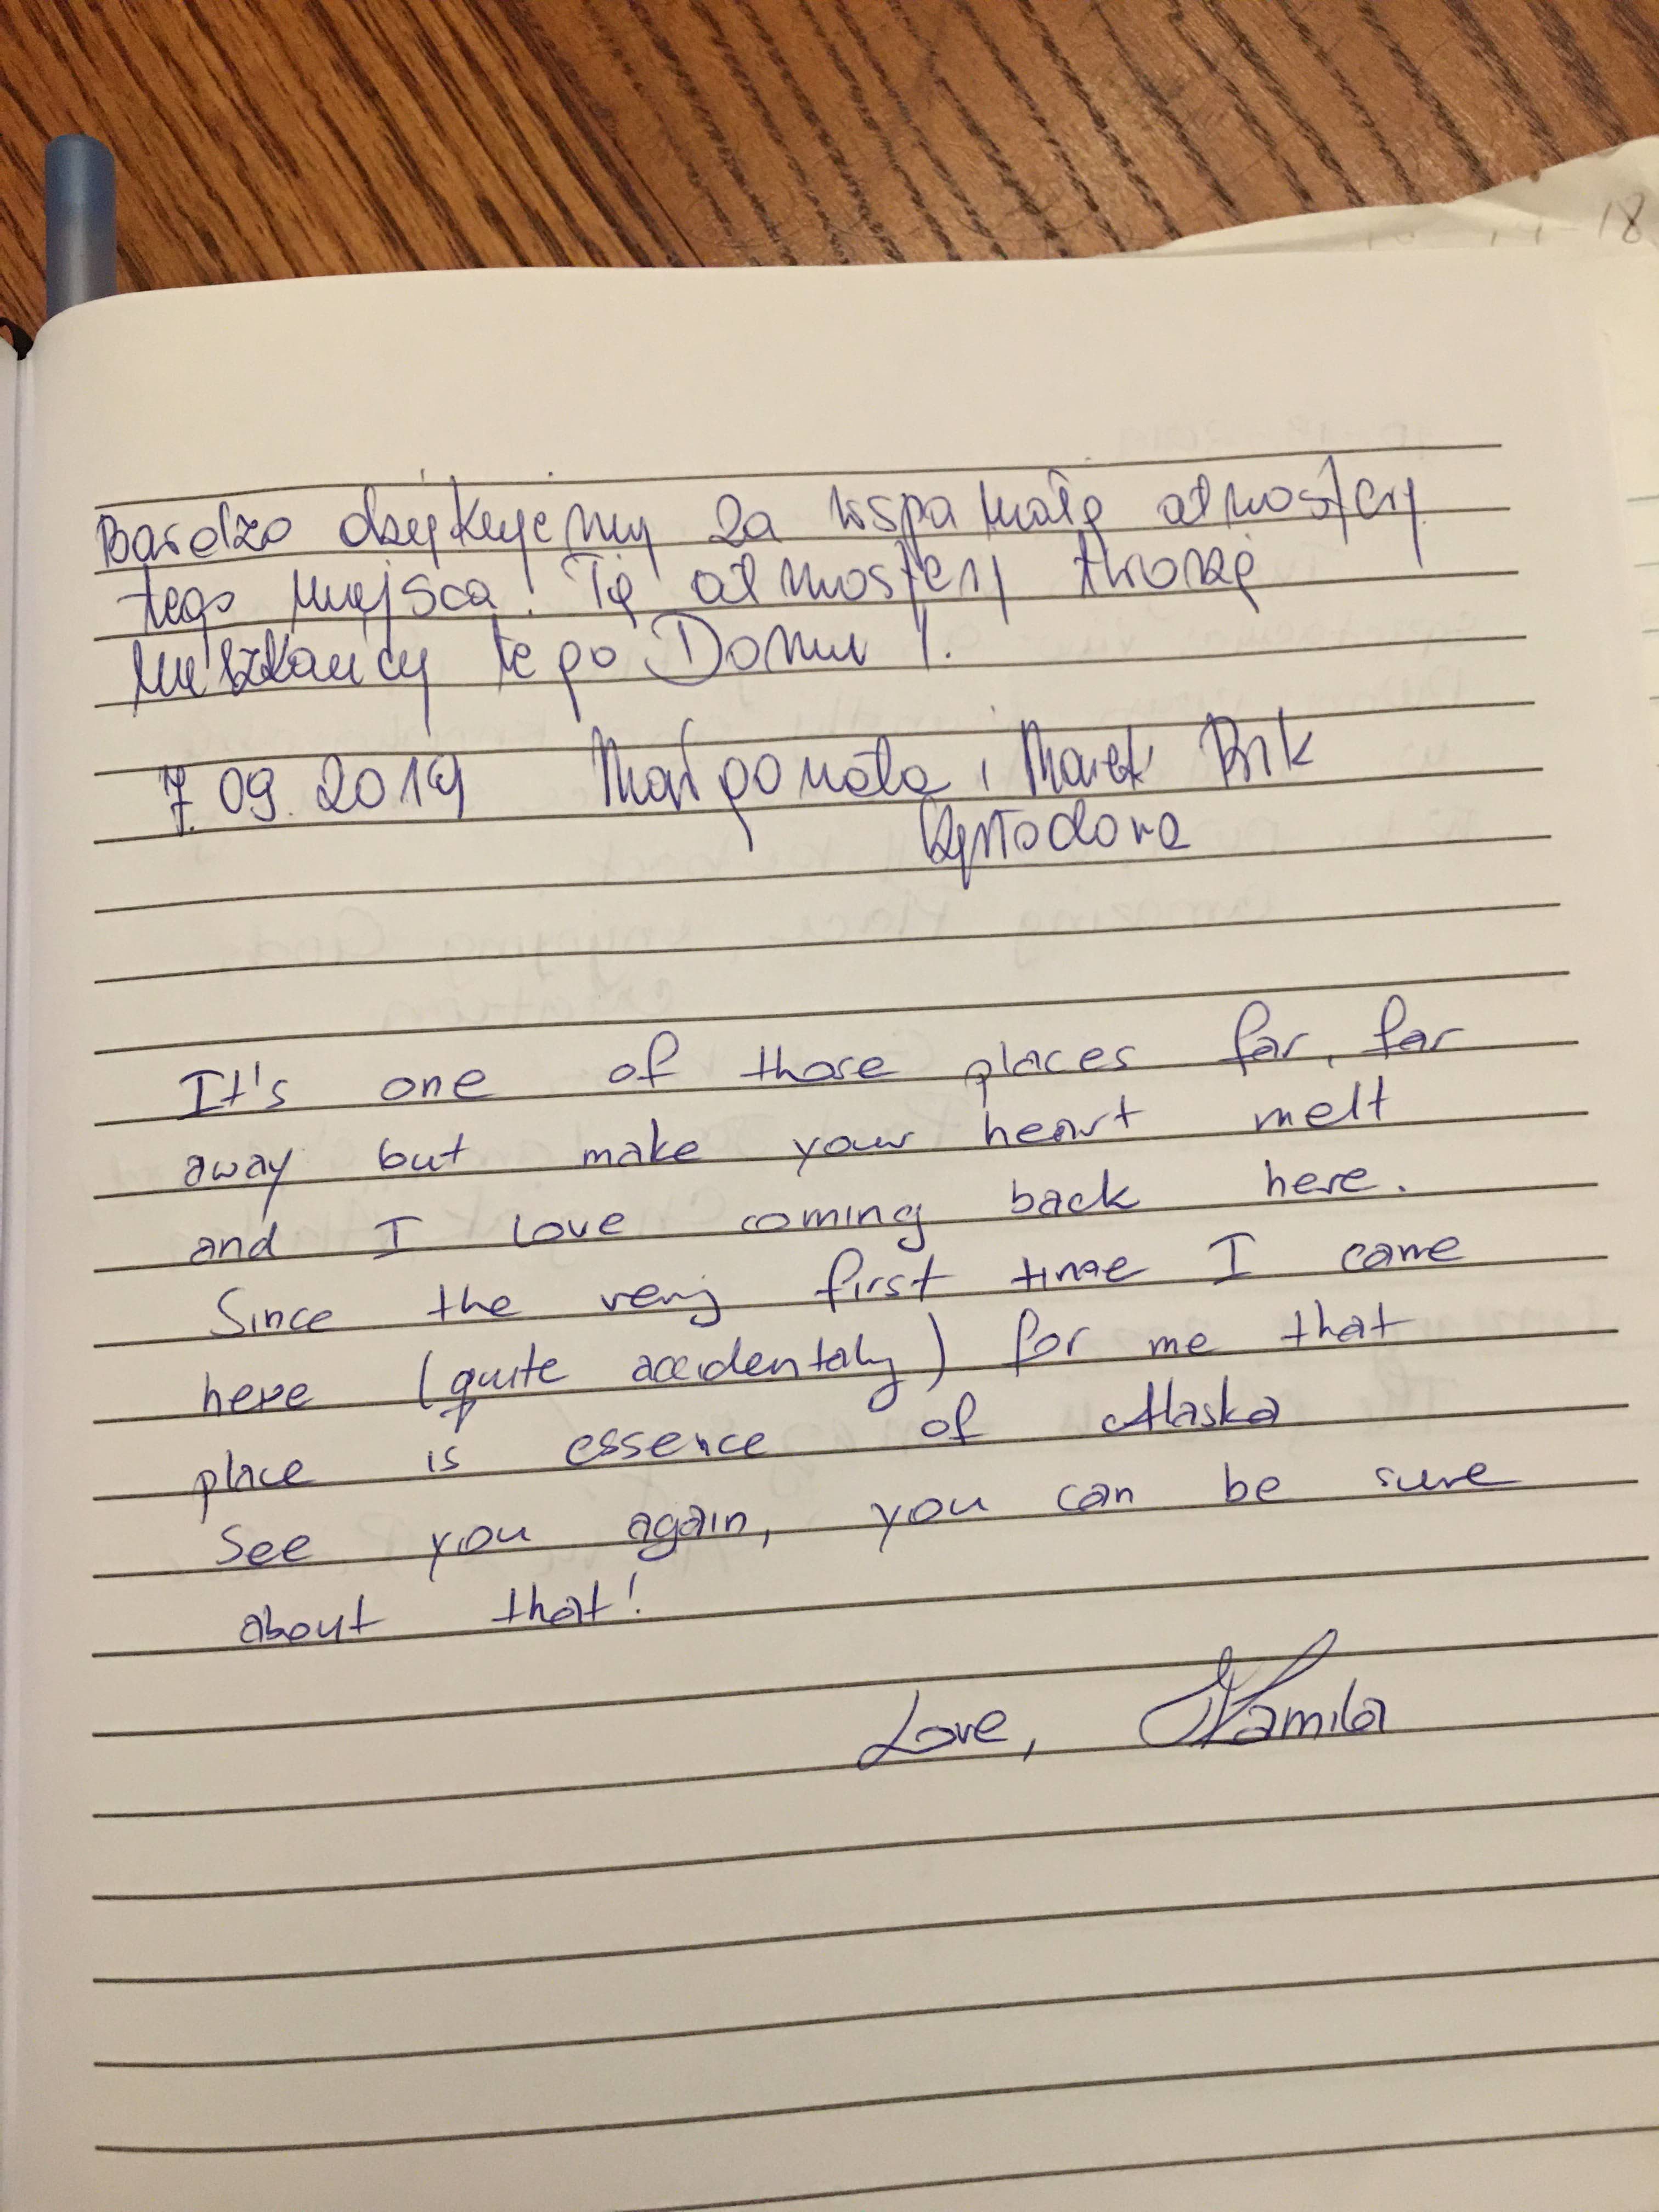 18
Bardzo dziękujemy za wspaniałą atmosferę
tego miejsca! Tę atmosferę tworzą
mieszkańcy tego Domu!
7.09.2019 Małgorzata i Marek
It's one of those places far, far
away but make your heart melt
and I love coming back here.
Since the very first time I came
here (quite accidentaly) for me that
place is essence of Alaska
See you again, you can be sure
about that!
Love, Kamila